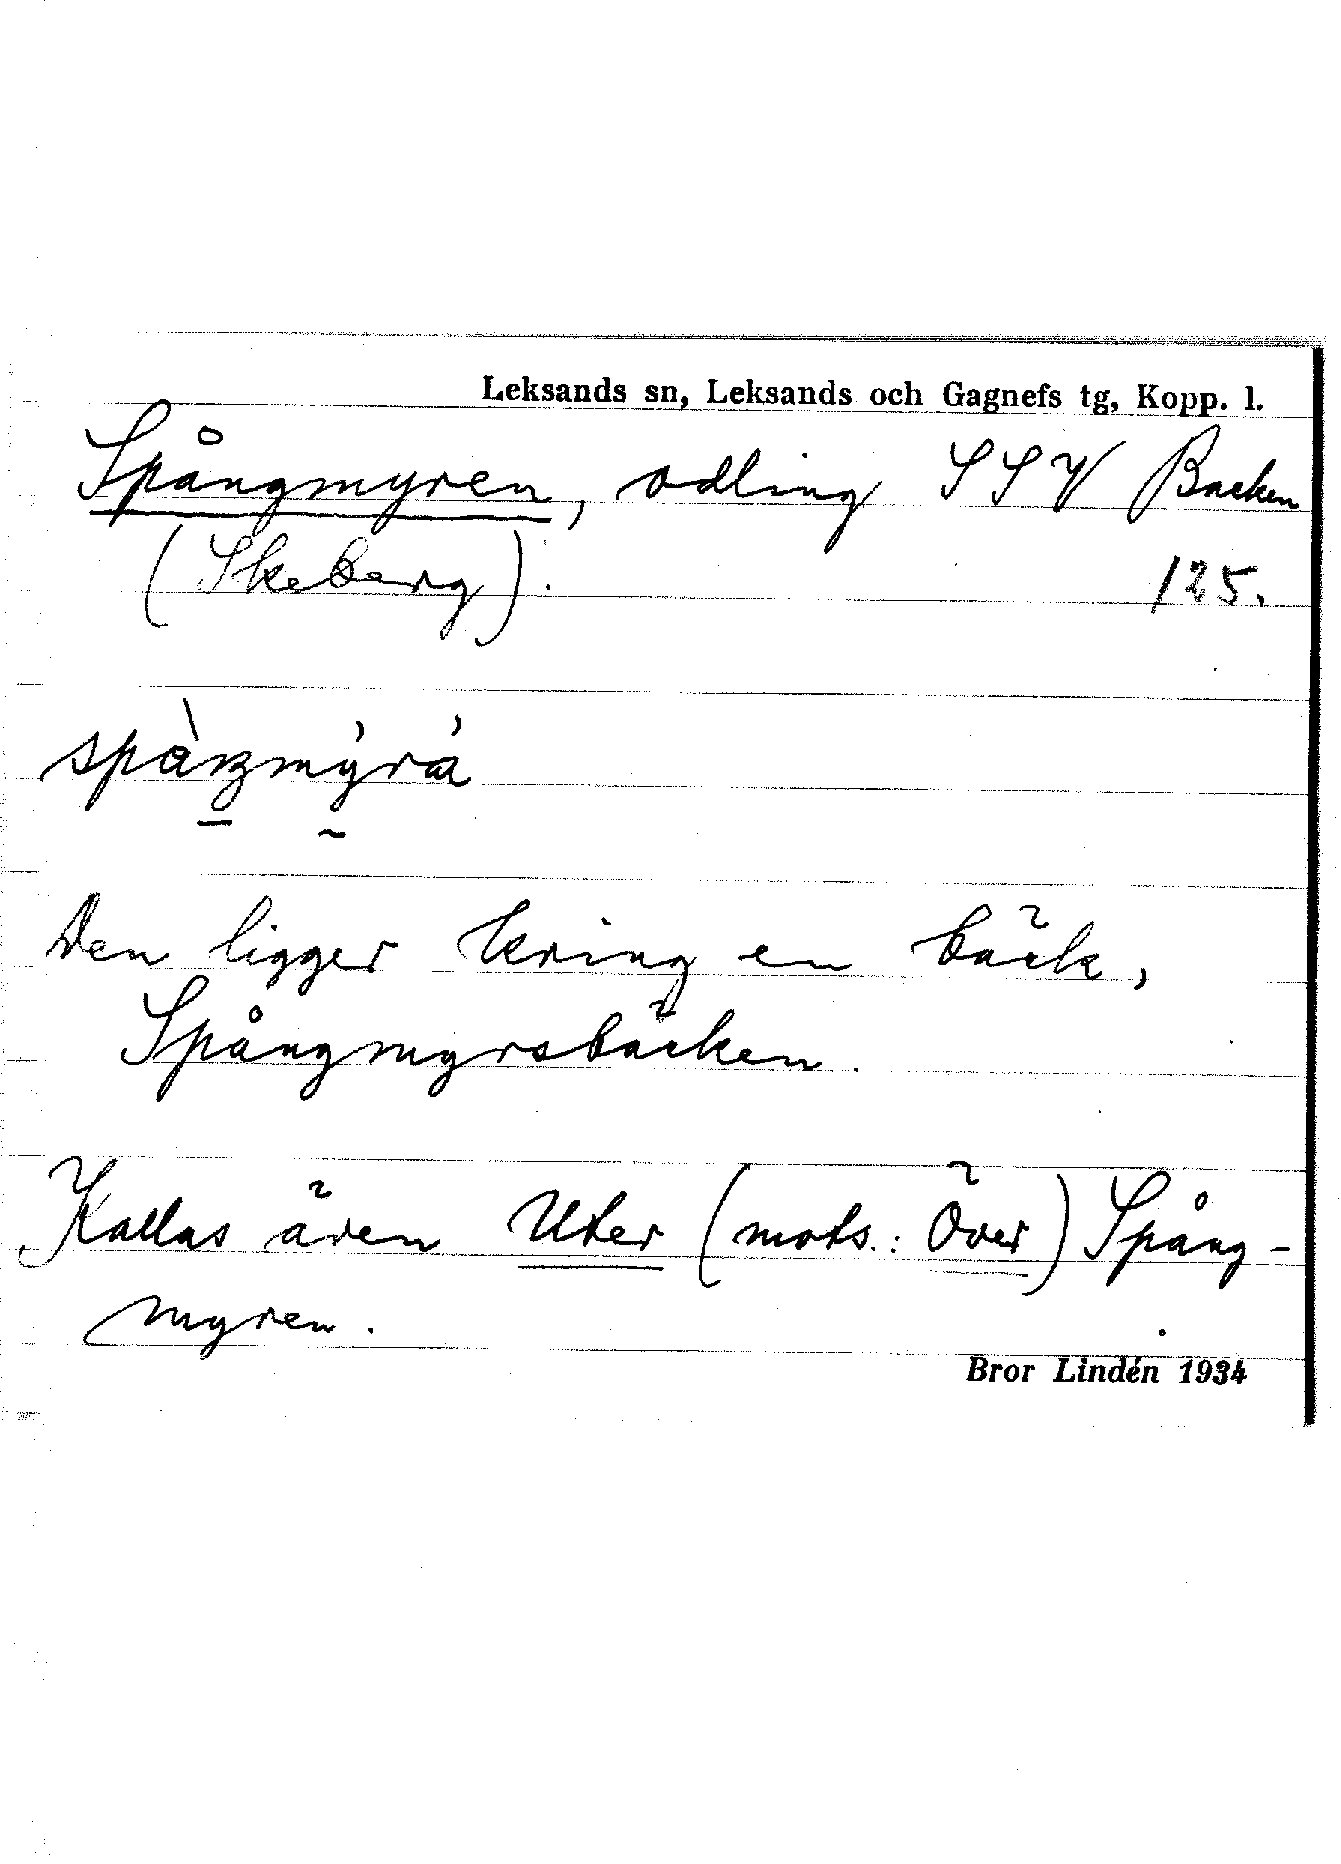 Leksands sn, Leksands och Gagnefs tg, Kopp. l.
Spångmyren, odling SSV Backen
(Skeberg). 125.
Den ligger kring en bäck,
Spångmyrsbäcken.
Kallas även Uter (mots.: Över) Spång-
myren.
Bror Lindén 1934